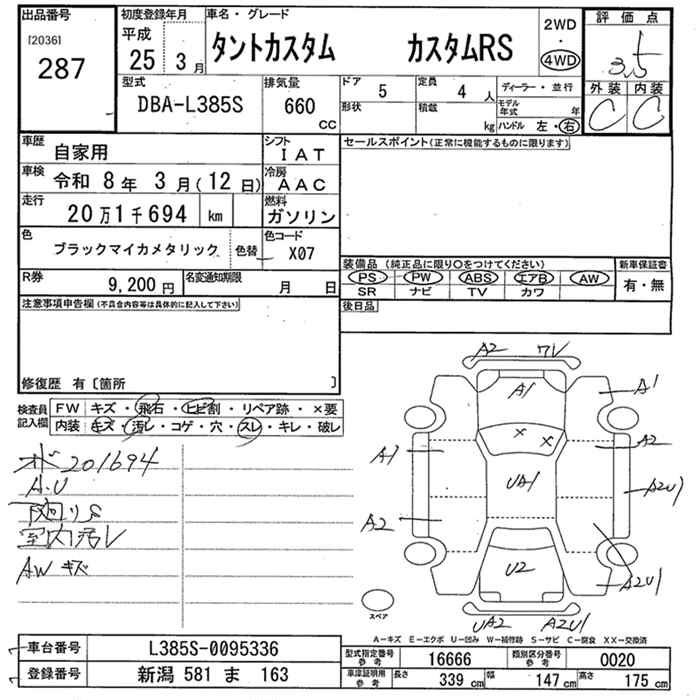 出品番号 初度登録年月 車名・グレード 2WD 評価点
[2036] 平成 タントカスタム カスタムRS ・ 3.5
287 25 3月 4WD 外装 内装
型式 排気量 ドア 5 定員 4人 ディーラー・並行 C C
DBA-L385S 660 cc 形状 積載 kg モデル年式 年
ハンドル 左・右
車歴 自家用 シフト IAT セールスポイント(正常に機能するものに限ります)
車検 令和 8年 3月(12日) 冷房 AAC
走行 20万1千694 km 燃料 ガソリン
色 ブラックマイカメタリック 色替 色コード X07
装備品(純正品に限り○をつけてください) 新車保証書
PS PW ABS エアB AW 有・無
SR ナビ TV カワ
R券 9,200円 名変通知期限 月 日
後日品
注意事項申告欄(不具合内容等は具体的に記入して下さい)
修復歴 有〔箇所 〕
検査員記入欄 FW キズ・飛石・ヒビ割・リペア跡・×要
内装 キズ・汚レ・コゲ・穴・スレ・キレ・破レ
201694
A.U
下廻りS
室内汚レ
AW キズ
A2 ワレ
A1 A1
A1 × × A2
UA1 A2U1
A2
U2 A2U1
UA2 A2U1
スペア
A-キズ E-エクボ U-凹み W-補修跡 S-サビ C-腐食 XX-交換済
車台番号 L385S-0095336
登録番号 新潟 581 ま 163
型式指定番号 参考 16666 類別区分番号 参考 0020
車庫証明用 参考 長さ 339 cm 幅 147 cm 高さ 175 cm